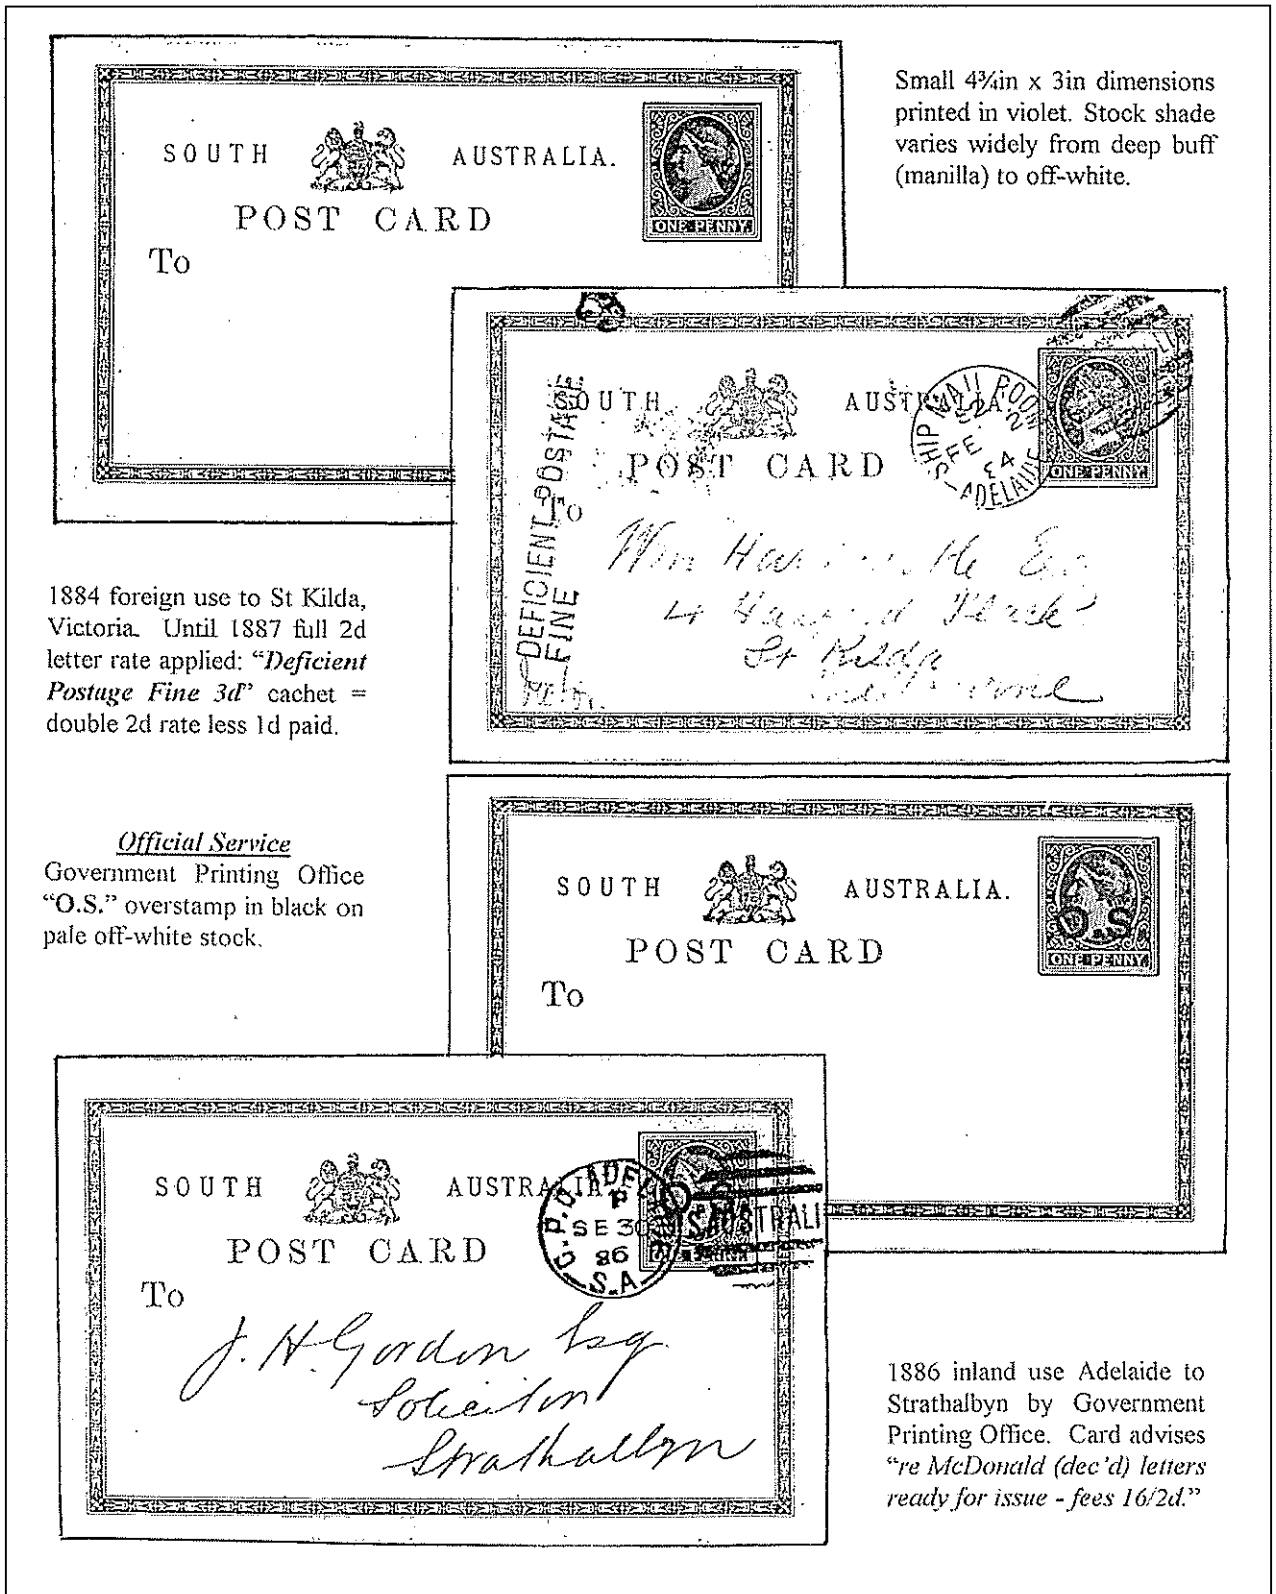 SOUTH AUSTRALIA.
POST CARD
To
ONE PENNY
Small 4¾in x 3in dimensions
printed in violet. Stock shade
varies widely from deep buff
(manilla) to off-white.
SOUTH AUSTRALIA.
POST CARD
To
ONE PENNY
SHIP MAIL ROOM
FE 2
84
ADELAIDE
DEFICIENT POSTAGE
FINE
Wm
4
St Kilda
Melbourne
1884 foreign use to St Kilda,
Victoria. Until 1887 full 2d
letter rate applied: “Deficient
Postage Fine 3d” cachet =
double 2d rate less 1d paid.
Official Service
Government Printing Office
“O.S.” overstamp in black on
pale off-white stock.
SOUTH AUSTRALIA.
POST CARD
To
O.S.
ONE PENNY
SOUTH AUSTRALIA.
POST CARD
To
G.P.O. ADEL
P
SE 30
86
S.A
S.AUSTRALI
J. H. Gordon Esq.
Solicitor
Strathalbyn
1886 inland use Adelaide to
Strathalbyn by Government
Printing Office. Card advises
“re McDonald (dec’d) letters
ready for issue - fees 16/2d.”